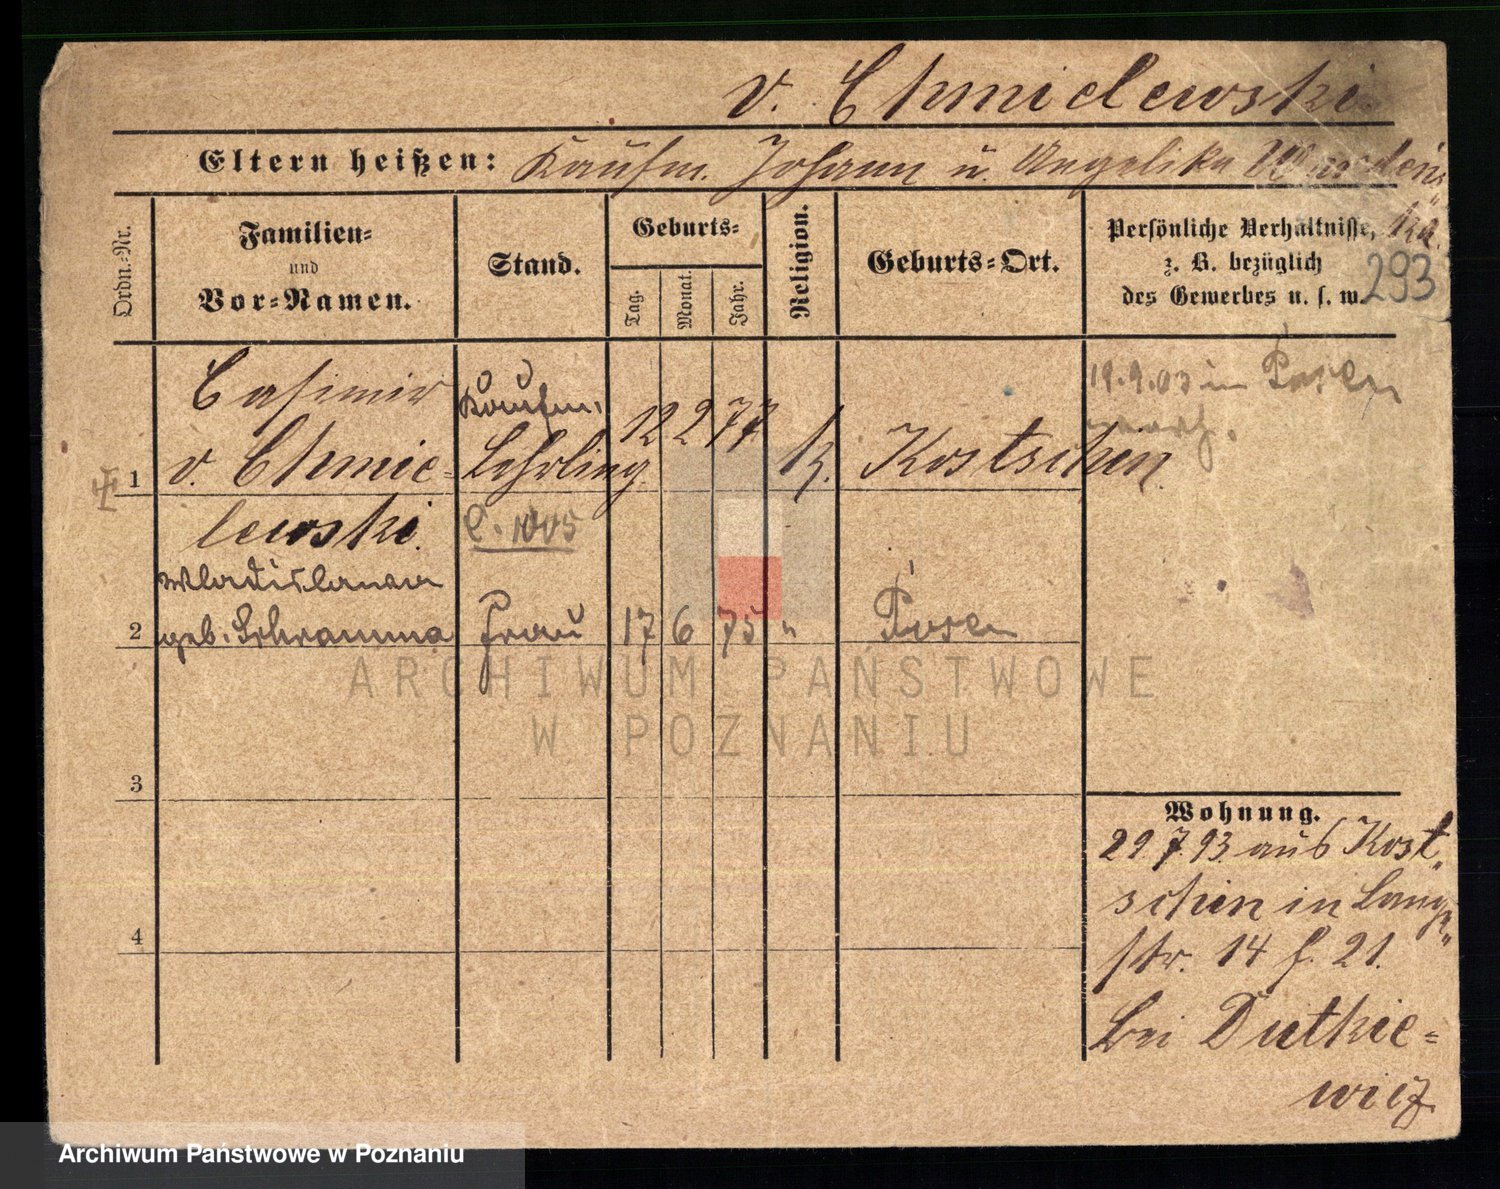 v. Chmielewski.
Eltern heißen: Kaufm. Johann u. Angelika
ka.
293
Ordn.-Nr.
Familien-
und
Vor-Namen.
Stand.
Geburts-
Tag.
Monat.
Jahr.
Religion.
Geburts-Ort.
Persönliche Verhältnisse,
z. B. bezüglich
des Gewerbes u. s. w.
1
Casimir
v. Chmie-
lewski.
Kaufm.
Lehrling
12 2 77 k. Kostschin.
19.9.03 in Posen
2
Wladislawa
geb. Schramma Frau 17 6 75 " Posen
3
4
Wohnung.
29.7.93. aus Kost-
schin in Lange-
str. 14 f. 21.
bei Dutkie-
wicz
ARCHIWUM PAŃSTWOWE
W POZNANIU
Archiwum Państwowe w Poznaniu